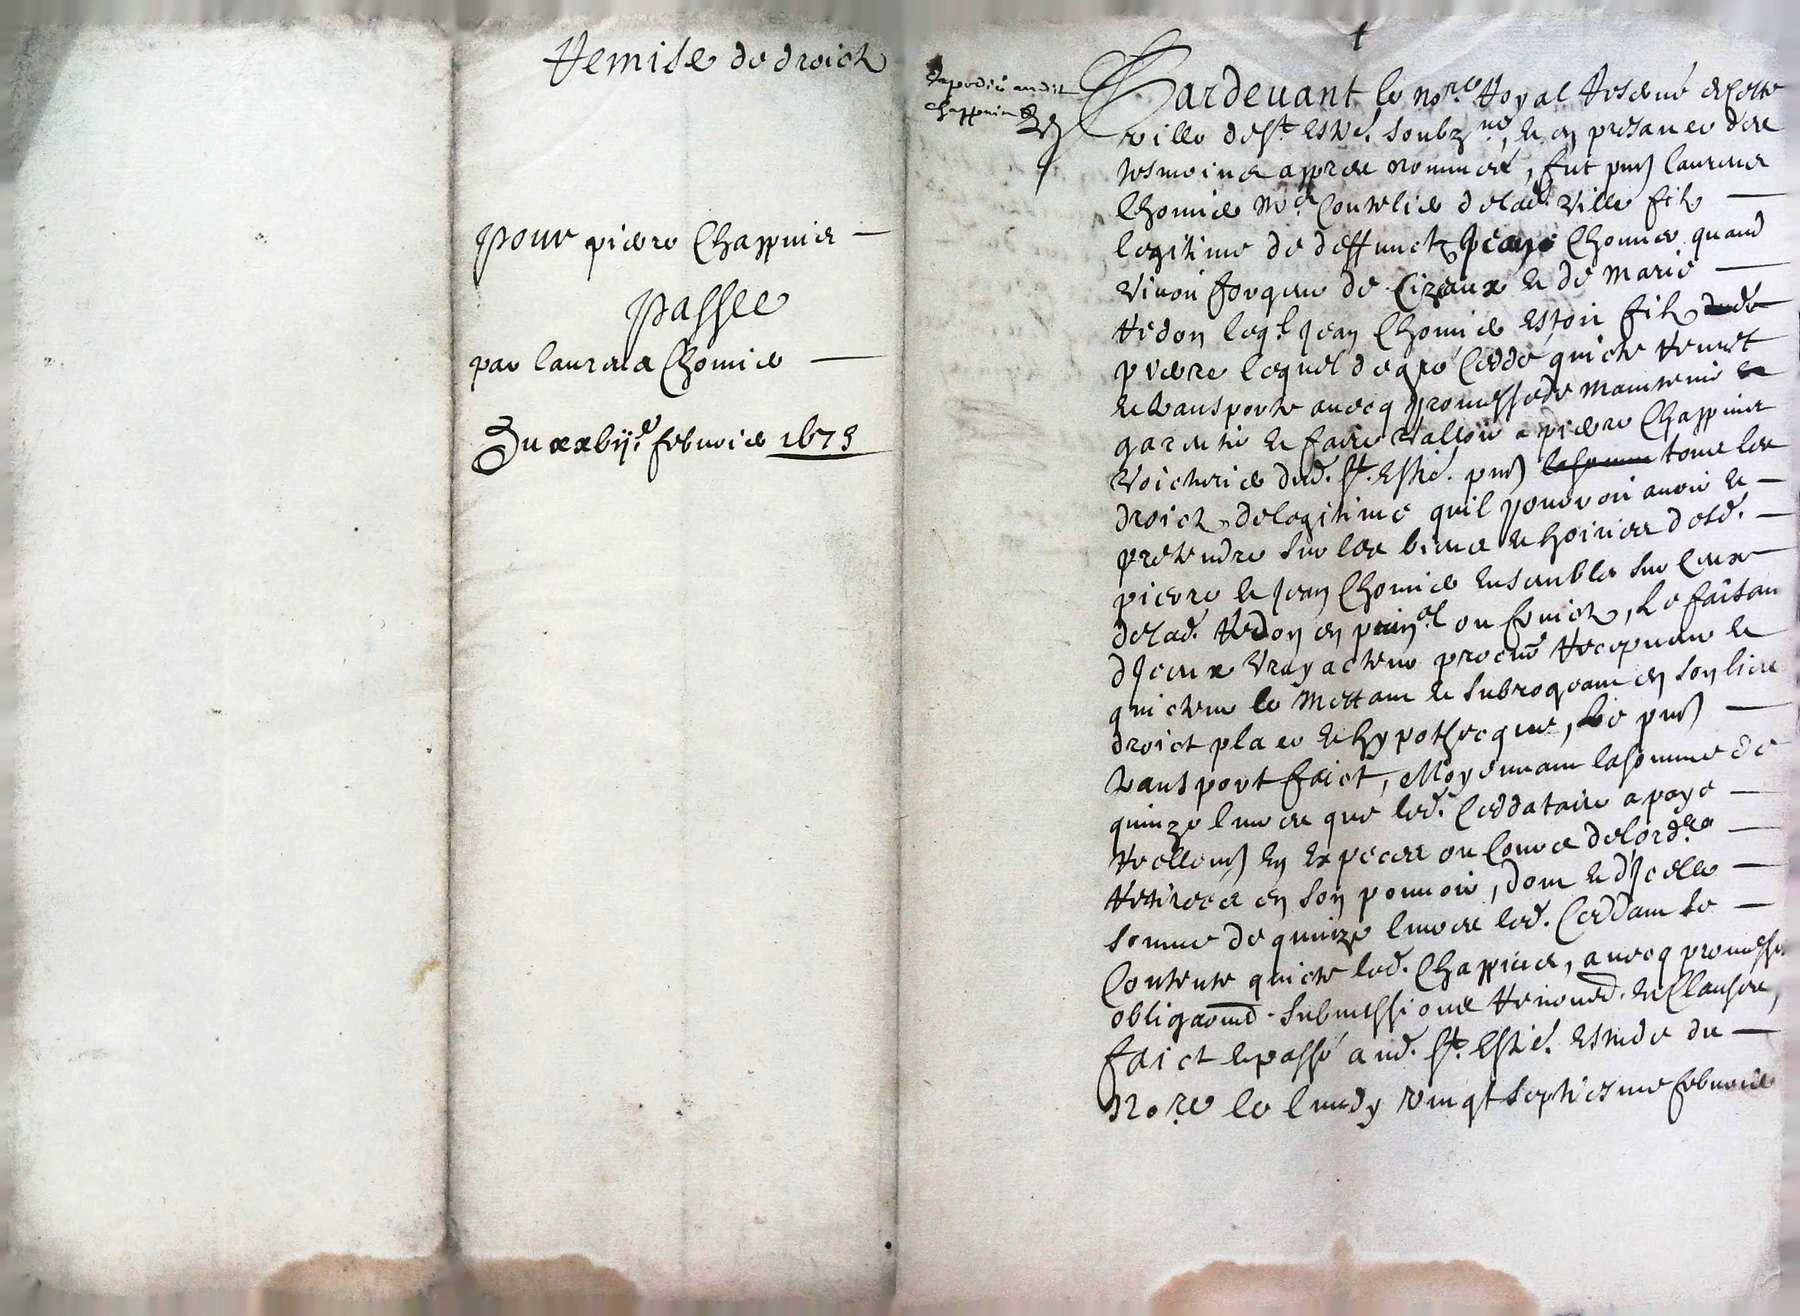 Remise de droictz
pour pierre Chappuier
Passee
par laurens Chomier
Du xxbij.e febvrier 1673
Expedié audit
Chappuier
Pardevant le no.re Royal Reservé de Ceste
ville de S.t Est.ne soubz.né, et en presance des
tesmoins apprés nommés, fut pnt laurens
Chomier M.e Coutelier de lad. ville filz
legitime de deffunctz Jean Chomier quand
vivoit forgeur de Cizeaux et de Marie
Redon leq.l Jean Chomier estoit filz dud.
pierre lequel de gré Cedde quicte Remet
et transporte avecq promesse de maintenir et
garentir et faire valloir a pierre Chappuier
Voicturier dud. S.t Esti.e pnt la somme tous les
droictz de legitime quil pouvoit avoir et
pretendre sur les biens et hoiries desd.
pierre et Jean Chomier Ensembles sur Ceux
de lad. Redon en prin.al ou fruictz, Le faisan
dJceux vray acteur procur Recepveur et
quicteur le Mettant et subrogeant en son lieu
droict place et hypothecque, le pnt
transport faict, Moyennant la somme de
quinze livres que led. Ceddataire a payé
Reellemt En Especes ou Cours de lord.ce
Retirees en son pouvoir, dont et dJcelle
somme de quinze livres led. Ceddant se
Contente quicte led. Chappuier, avecq promesses
obliga͠ons submissions Renond. et Clauses,
faict et passé aud. S.t Esti.e Estude du
No.re le lundy vingt septiesme febvrier